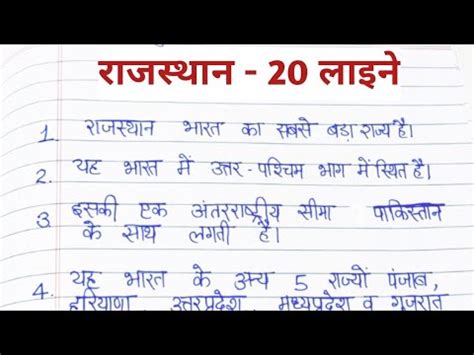 राजस्थान - 20 लाइने
1. राजस्थान भारत का सबसे बड़ा राज्य है।
2. यह भारत में उत्तर-पश्चिम भाग में स्थित है।
3. इसकी एक अंतरराष्ट्रीय सीमा पाकिस्तान
के साथ लगती है।
4. यह भारत के अन्य 5 राज्यों पंजाब,
हरियाणा, उत्तरप्रदेश, मध्यप्रदेश व गुजरात